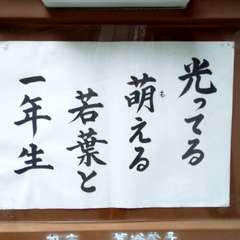 光ってる
萌える
も
若葉と
一年生